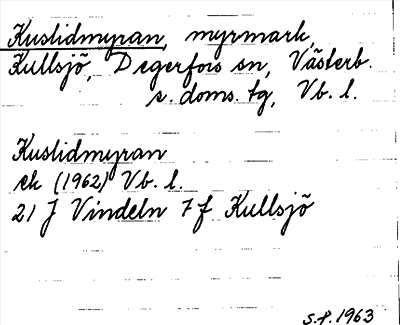 Kuslidmyran, myrmark,
Kullsjö, Degerfors sn, Västerb.
s. doms. tg, Vb. l.
Kuslidmyran
ek (1962) Vb. l.
21 J Vindeln 7 f Kullsjö
S.P. 1963